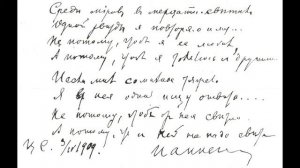 Среди міров, в мерцаніи светил
Одной звезды я повторяю имя...
Не потому, чтоб я ее любил
А потому, что я томлюсь с другими
И если мне сомненье тяжело
Я у нея одной ищу ответа...
Не потому, что от нея светло
А потому, что с ней не надо света
Ц. С. 3/IV 1909